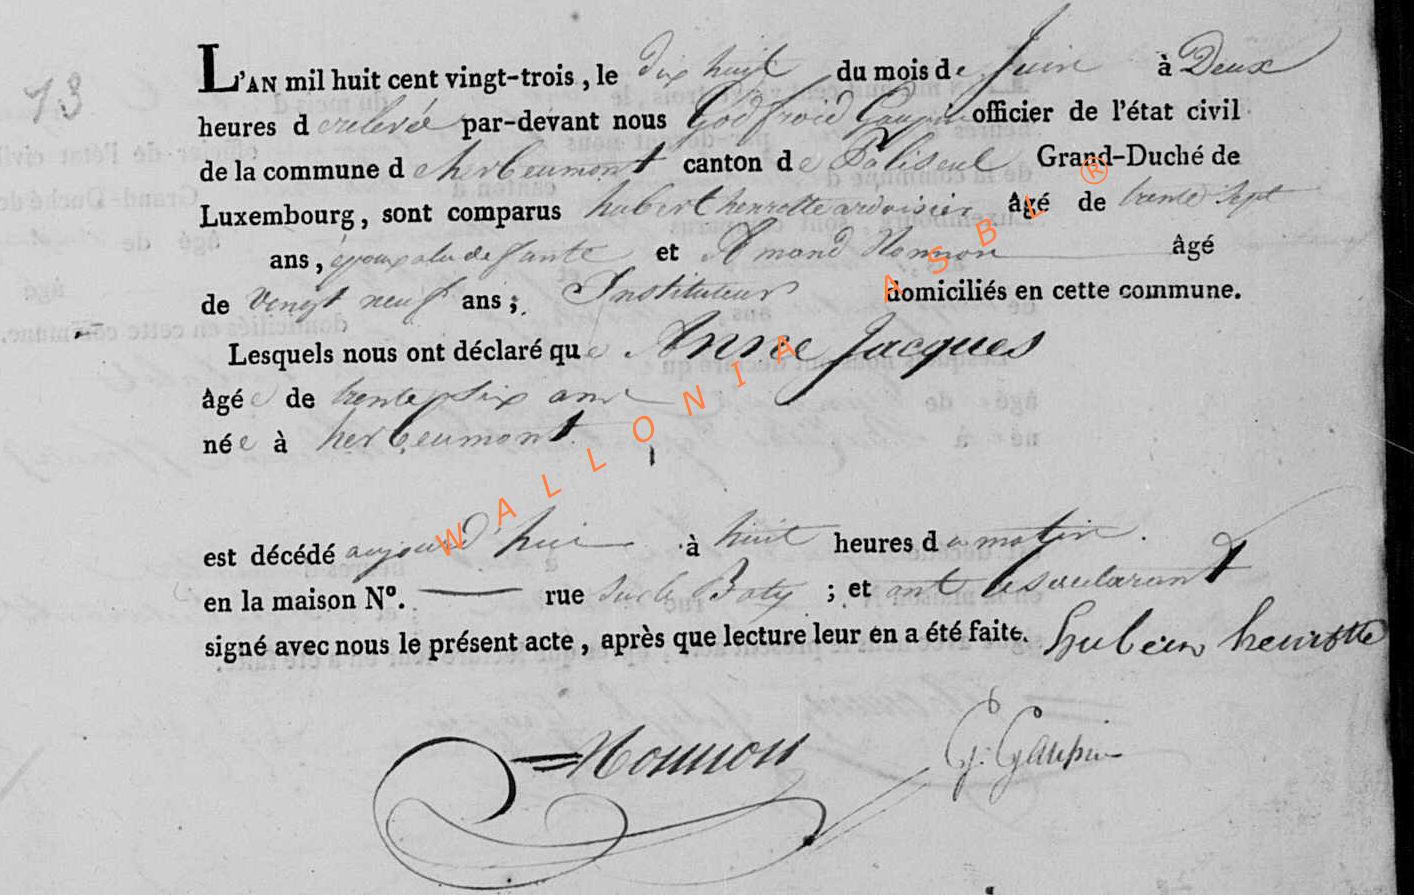 13
L'AN mil huit cent vingt-trois, le dix huit du mois de Juin à Deux
heures de relevée par-devant nous Godfroid Gaupin officier de l'état civil
de la commune d herbeumont canton de Paliseul Grand-Duché de
Luxembourg, sont comparus hubert henrotte ardoisier âgé de trente sept
ans, époux de la defante et Amand Nonnon âgé
de vingt neuf ans; Instituteur domiciliés en cette commune.
Lesquels nous ont déclaré que Anne Jacques
âgée de trente six ans
née à herbeumont
est décédé aujourd'hui à huit heures du matin.
en la maison Nº. rue sur le Baty ; et ont les declarant
signé avec nous le présent acte, après que lecture leur en a été faite. hubert henrotte
Nonnon G. Gaupin
WALLONIA ASBL ®